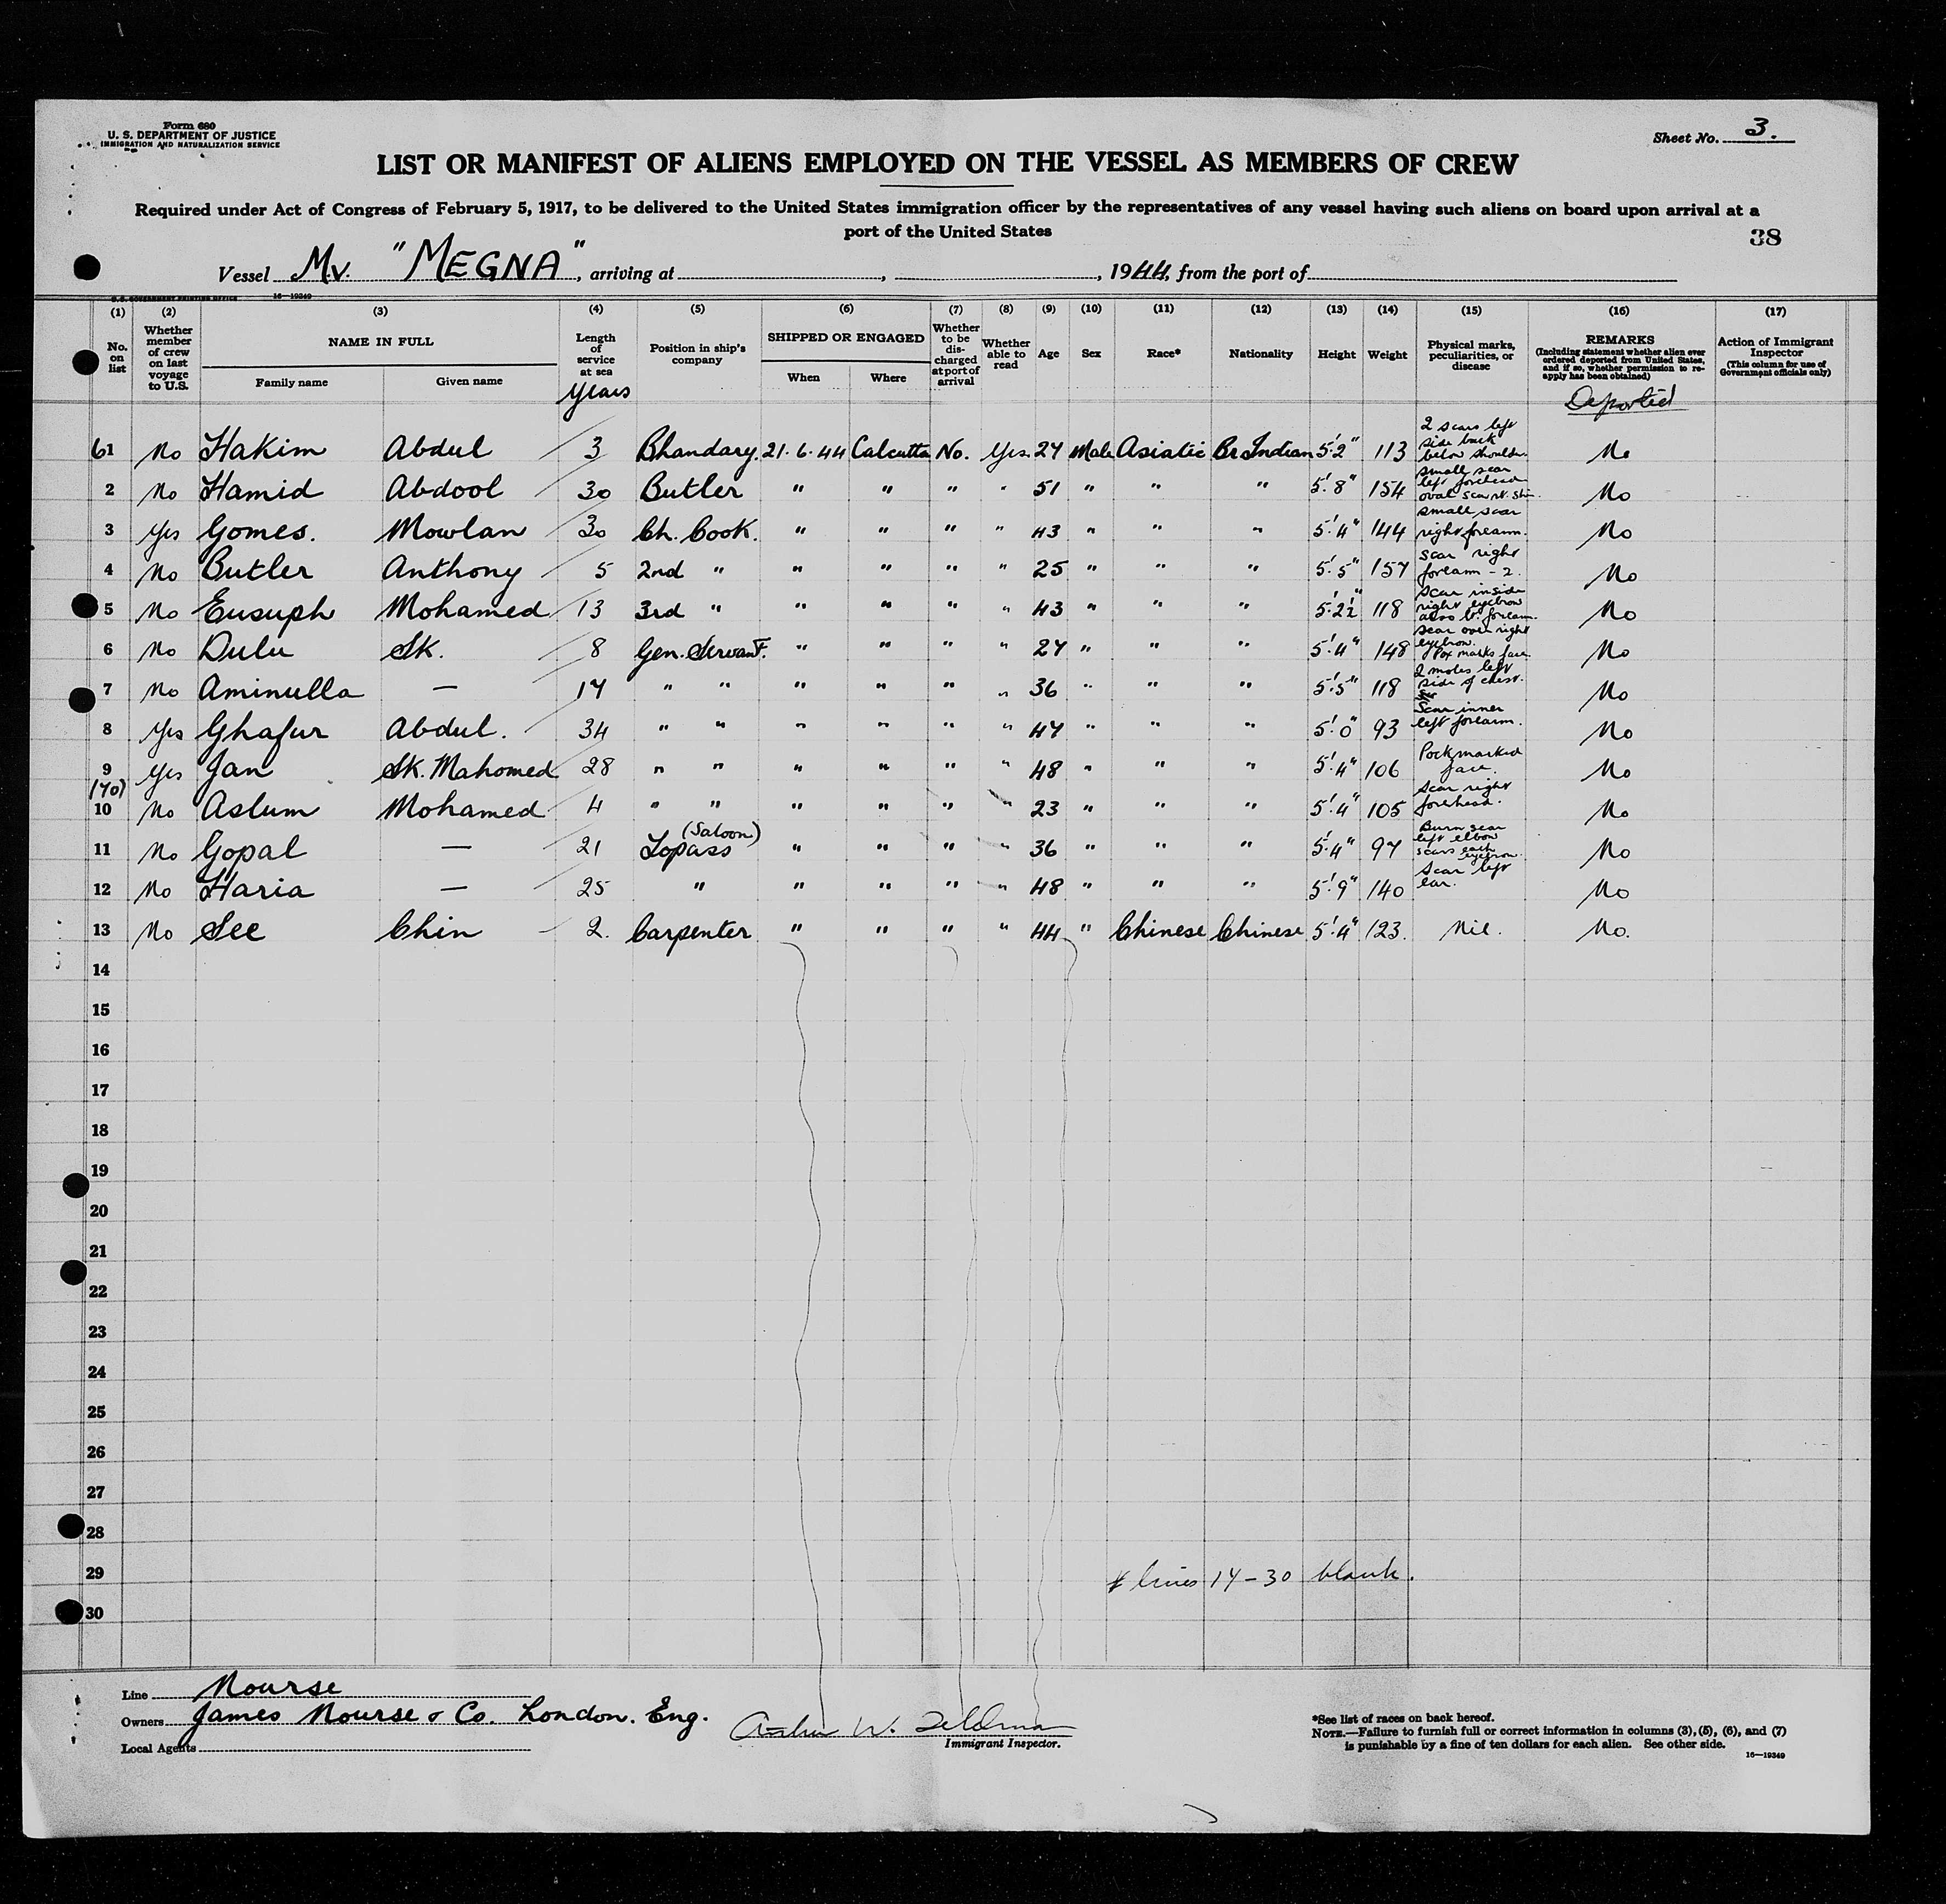 Form 680
U. S. DEPARTMENT OF JUSTICE
IMMIGRATION AND NATURALIZATION SERVICE
Sheet No. 3.
LIST OR MANIFEST OF ALIENS EMPLOYED ON THE VESSEL AS MEMBERS OF CREW
Required under Act of Congress of February 5, 1917, to be delivered to the United States immigration officer by the representatives of any vessel having such aliens on board upon arrival at a
port of the United States
38
Vessel M.v. "MEGNA", arriving at , , 1944, from the port of
U. S. GOVERNMENT PRINTING OFFICE 16—19349
(1) No. on list
(2) Whether member of crew on last voyage to U.S.
(3) NAME IN FULL Family name Given name
(4) Length of service at sea years
(5) Position in ship's company
(6) SHIPPED OR ENGAGED When Where
(7) Whether to be discharged at port of arrival
(8) Whether able to read
(9) Age
(10) Sex
(11) Race*
(12) Nationality
(13) Height
(14) Weight
(15) Physical marks, peculiarities, or disease
(16) REMARKS (Including statement whether alien ever ordered deported from United States, and if so, whether permission to reapply has been obtained) Deported
(17) Action of Immigrant Inspector (This column for use of Government officials only)
61 No Hakim Abdul 3 Bhandary. 21.6.44 Calcutta No. Yes 27 Male Asiatic Br Indian 5'.2" 113 2 scars left side back below shoulder No
2 No Hamid Abdool 30 Butler " " " " 51 " " " 5'.8" 154 small scar left forehead oval scar rt. shin. No
3 Yes Gomes. Mowlan 30 Ch. Cook. " " " " 43 " " " 5'.4" 144 small scar right forearm. No
4 No Butler Anthony 5 2nd " " " " " 25 " " " 5'.5" 157 scar right forearm - 2. No
5 No Eusuph Mohamed 13 3rd " " " " " 43 " " " 5'.2½" 118 scar inside right eyebrow also lt. forearm. No
6 No Dulu Sk. 8 Gen. Servant. " " " " 27 " " " 5'.4" 148 scar over right eyebrow. Pox marks face No
7 No Aminulla — 17 " " " " " " 36 " " " 5'.5" 118 2 moles left side of chest. No
8 Yes Ghafur Abdul. 34 " " " " " " 47 " " " 5'.0" 93 Scar inner left forearm. No
9 Yes Jan Sk. Mahomed 28 " " " " " " 48 " " " 5'.4" 106 Pockmarked face. No
(70)
10 No Aslum Mohamed 4 " " " " " " 23 " " " 5'.4" 105 Scar right forehead. No
11 No Gopal — 21 (Saloon) Topass " " " " 36 " " " 5'.4" 97 Burn scar left elbow scars each eyebrow. No
12 No Haria — 25 " " " " " 48 " " " 5'.9" 140 Scar left ear. No
13 No See Chin 2. Carpenter " " " " 44 " Chinese Chinese 5'.4" 123. Nil. No.
14
15
16
17
18
19
20
21
22
23
24
25
26
27
28
29
# lines 14-30 blank.
30
Line Nourse
Owners James Nourse & Co. London. Eng.
Local Agents
Immigrant Inspector.
*See list of races on back hereof.
NOTE.—Failure to furnish full or correct information in columns (3), (5), (6), and (7)
is punishable by a fine of ten dollars for each alien. See other side.
16—19349